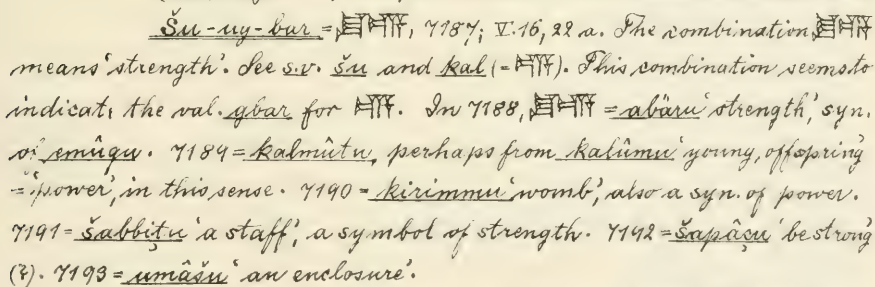 Šu-uy-bur = 𒋗𒆗, 7187; V. 16, 22 a. The combination 𒋗𒆗
means 'strength'. See s.v. šu and kal (= 𒆗). This combination seems to
indicat, the val. gbar for 𒆗. In 7188, 𒋗𒆗 = abâru 'strength', syn.
of emûqu. 7189 = kalmûtu, perhaps from kalûmu 'young, offspring'
= 'power', in this sense. 7190 = kirimmu 'womb', also a syn. of power.
7191 = šabbiṭu 'a staff', a symbol of strength. 7192 = šapâṣu 'be strong
(?). 7193 = umâšu 'an enclosure'.